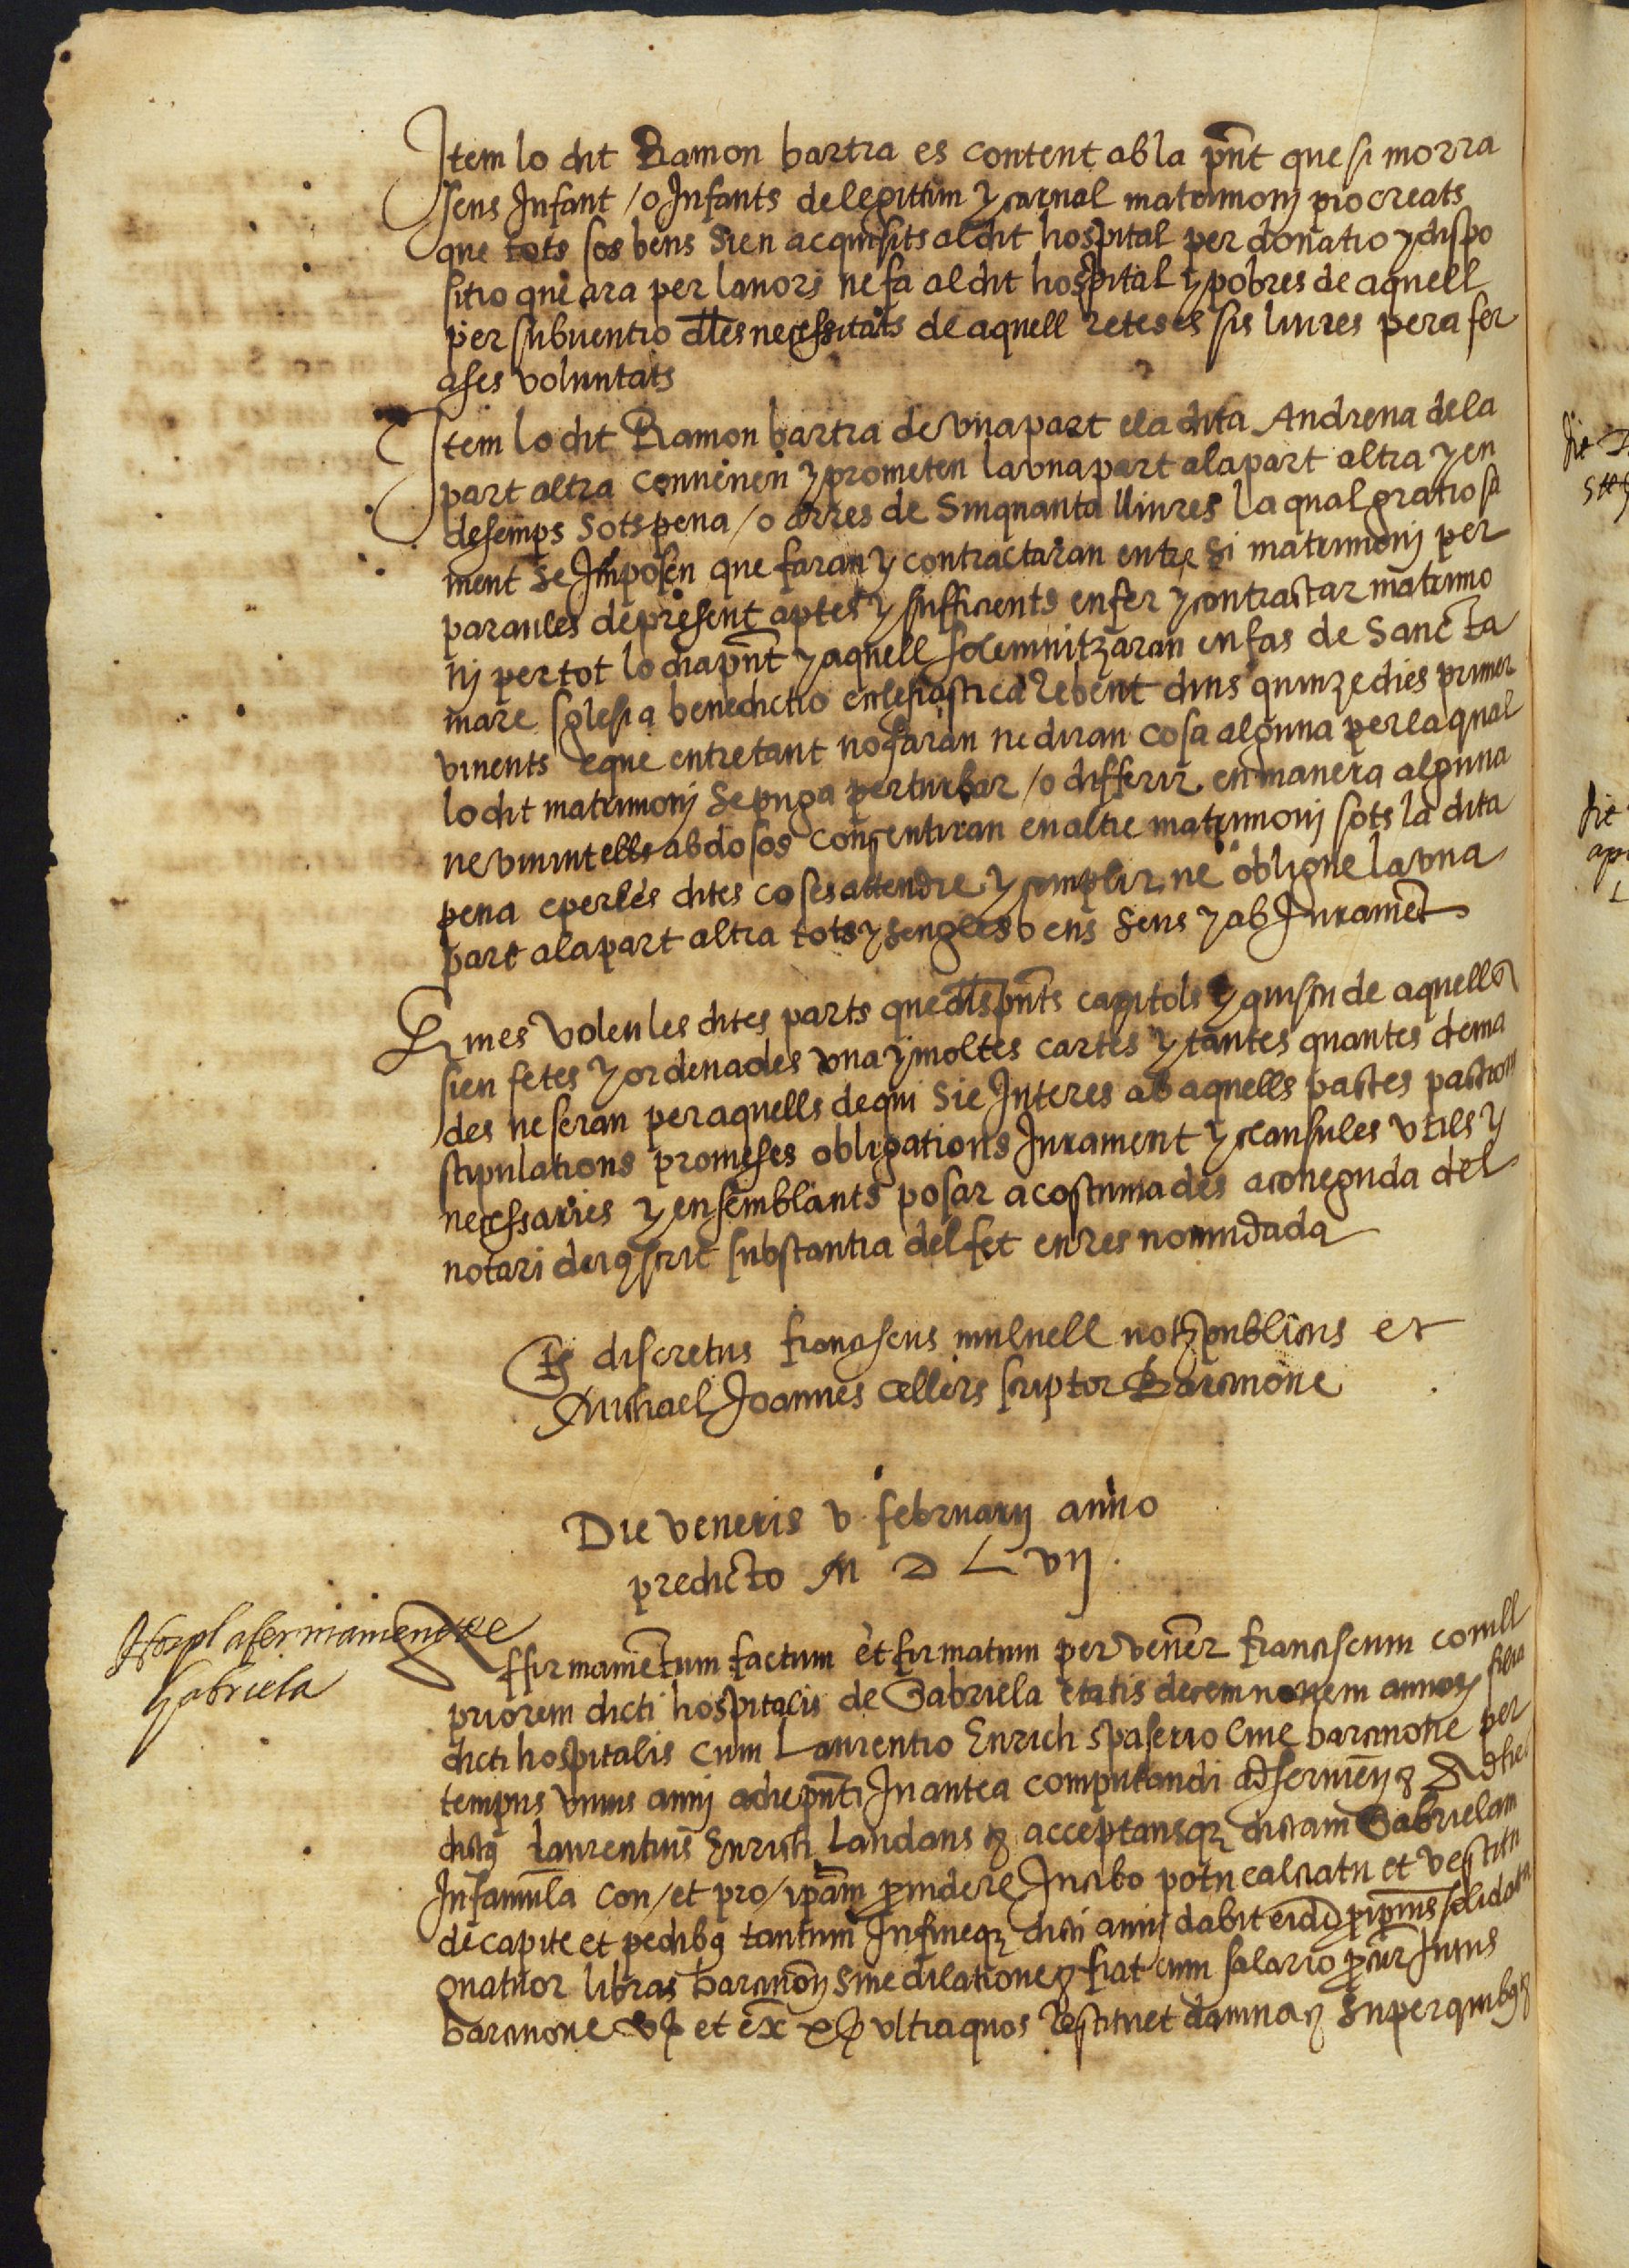 Item lo dit Ramon bartra es content ab la pnt que si morra
sens Infant / o Infants de legittim y carnal matrimonj procreats
que tots sos bens sien acquisits al dit hospital per donatio y dispo
sitio que ara per lanors ne fa al dit hospital y pobres de aquell
per subventio dles necessitats de aquell reteses sis liures pera fer
a ses voluntats
Item lo dit Ramon bartra de vna part e la dita Andreua de la
part altra conuenen y prometen la vna part a la part altra y en
desemps sots pena / o arres de Sinquanta lliures la qual gratiosa
ment se Imposen que faran y contractaran entre si matrimonj per
paraules de present aptes y sufficients en fer y contractar matrimo
nj per tot lo dia pnt y aquell solemnitzaran en fas de Sancta
mare sglesia benedictio ecclesiastica rebent dins quinze dies primer
vinents e que entretant no faran ne diran cosa alguna per la qual
lo dit matrimonj se puga perturbar / o differir en manera alguna
ne viuint ells abdosos consentiran en altre matrimonj sots la dita
pena e per les dites coses attendre y complir ne obligue la vna
part a la part altra tots y sengles bens seus y ab Jurament
E mes volen les dites parts que dls pnts capitols y quiscu de aquells
sien fetes y ordenades vna y moltes cartes y tantes quantes dema
des ne seran per aquells de qui sie Interes ab aquells pactes pactions
stipulations promeses obligations Jurament y clausules vtils y
necessaries y en semblants posar acostumades a coneguda del
notari deius scrit substantia del fet en res no mudada
Ts discretus franciscus mulnell not publicus et
Michael Joannes cellers scriptor Barcinone
Die veneris v februarij anno
predicto M D L vij
Hospl afermament de
Gabriela
Affirmamentum factum et firmatum per vener franciscum comill
priorem dicti hospitalis de Gabriela etatis decem nonem annor filia
dicti hospitalis cum Laurentio Enrich spaserio ciue barcinone per
tempus vnius annj a die pnti Inantea computandi ad seruien Adhec
dictus laurentius Enrich laudans acceptansq dictam Gabrielam
In famula con / et pro / ipam prouidere In cibo potu calciatu et vestitu
de capite et pedibus tantum In fineq dicti annj dabit eidem solidata
quatuor libras barcinon sine dilatione fiat cum salario procur Intus
barcinone v et ex x vltra quos restituet damna Super quibus